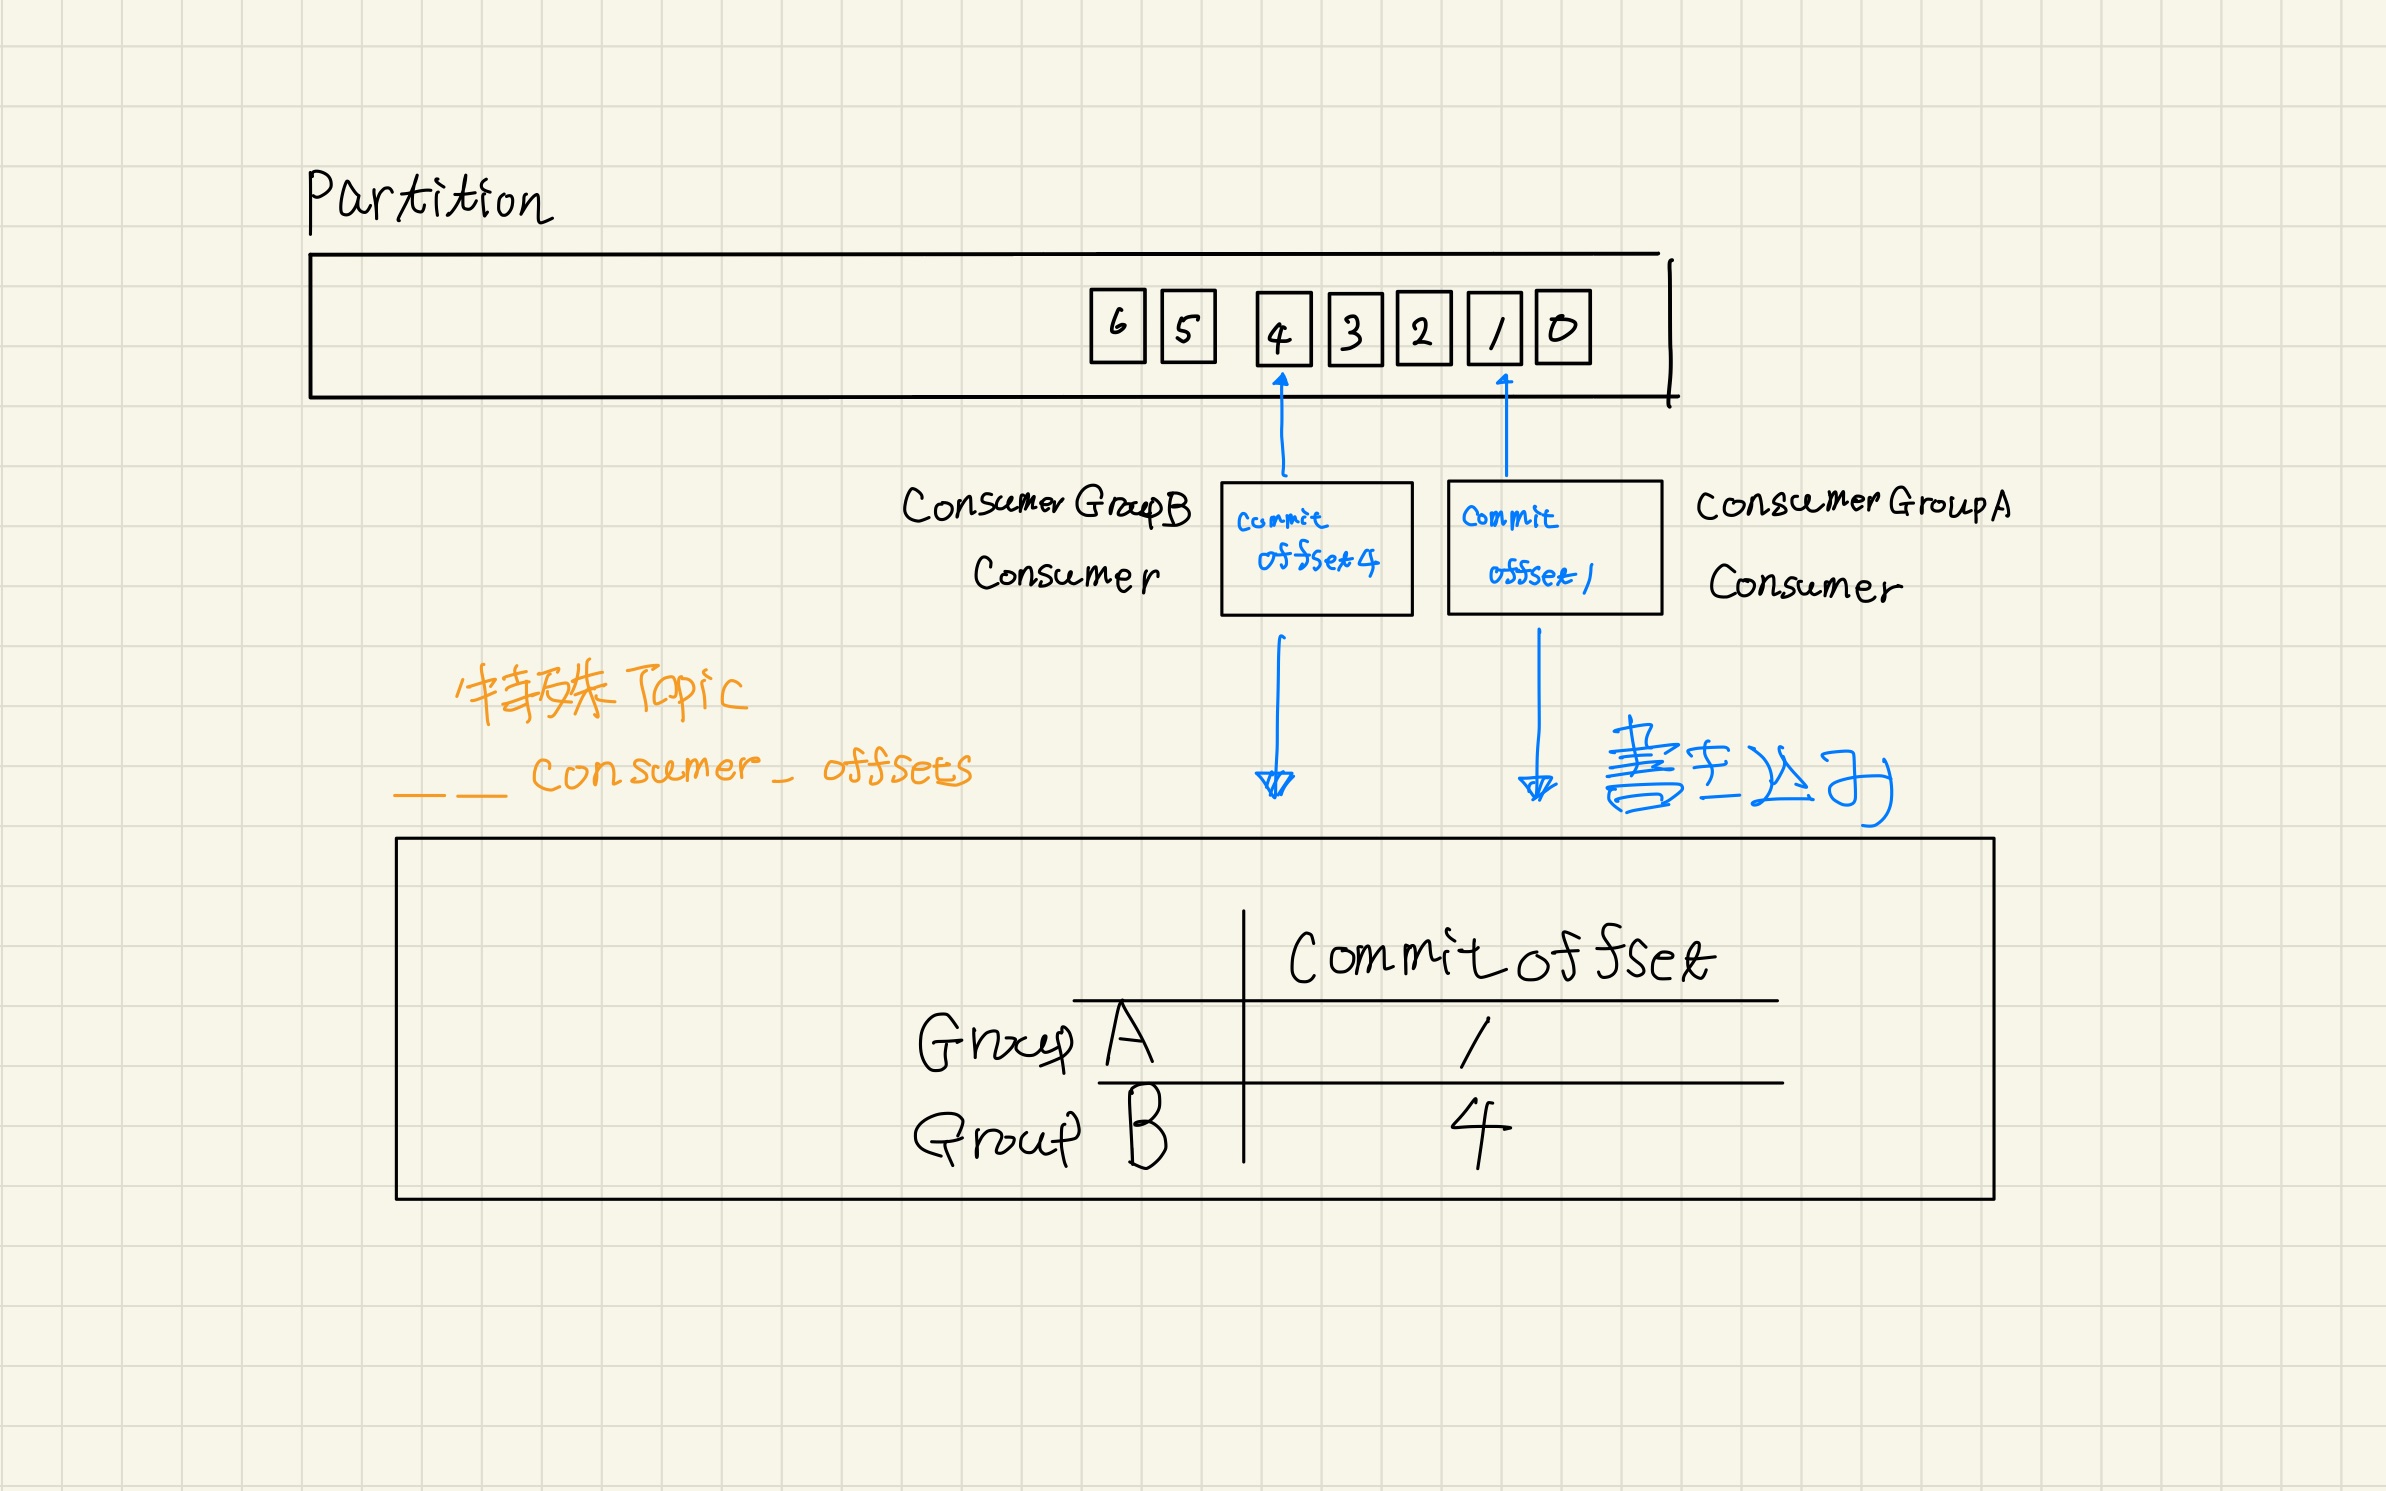 Partition
6 5 4 3 2 1 0
Consumer Group B
Consumer
commit
offset 4
Commit
offset 1
Consumer Group A
Consumer
特殊 Topic
__ consumer_offsets
書き込み
Commit offset
Group A 1
Group B 4